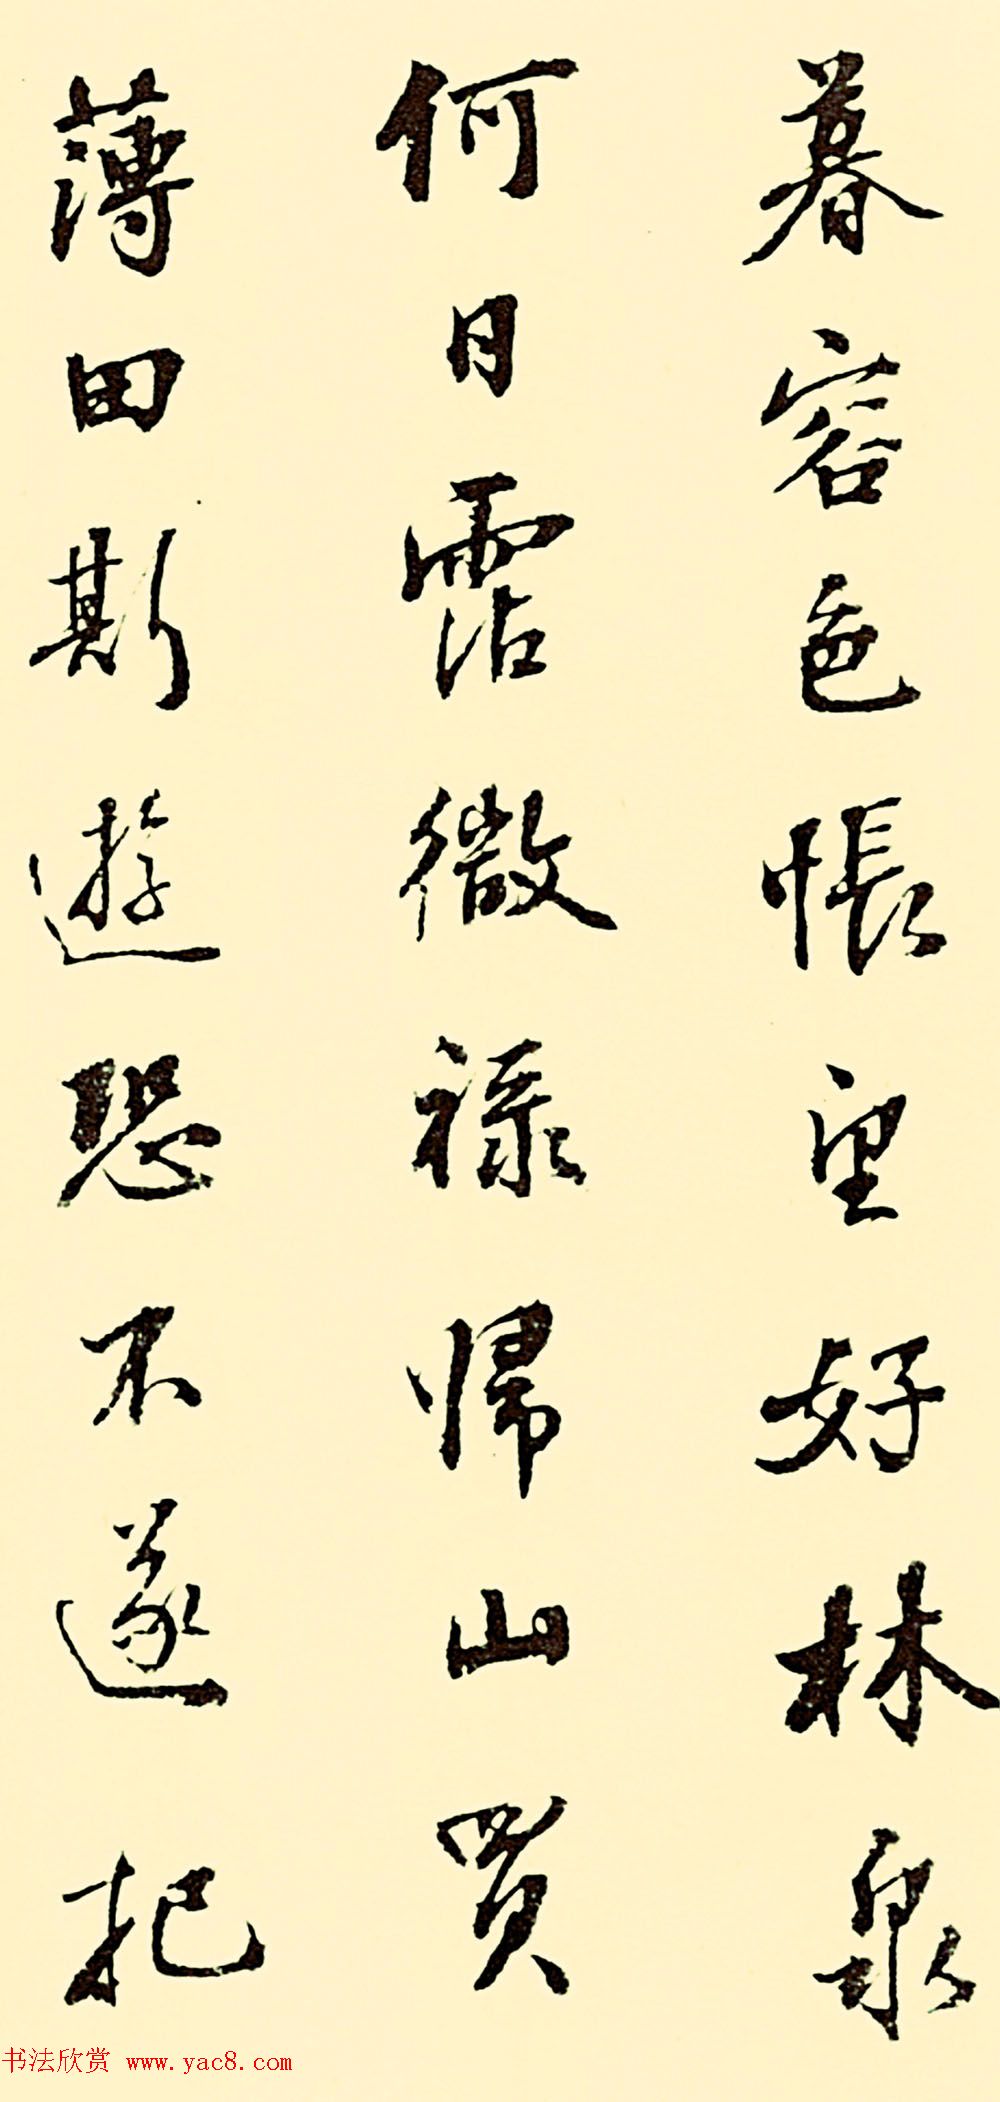 暮容色悵望好林泉
何日霑微禄帰山買
薄田斯遊恐不遂把
书法欣赏 www.yac8.com